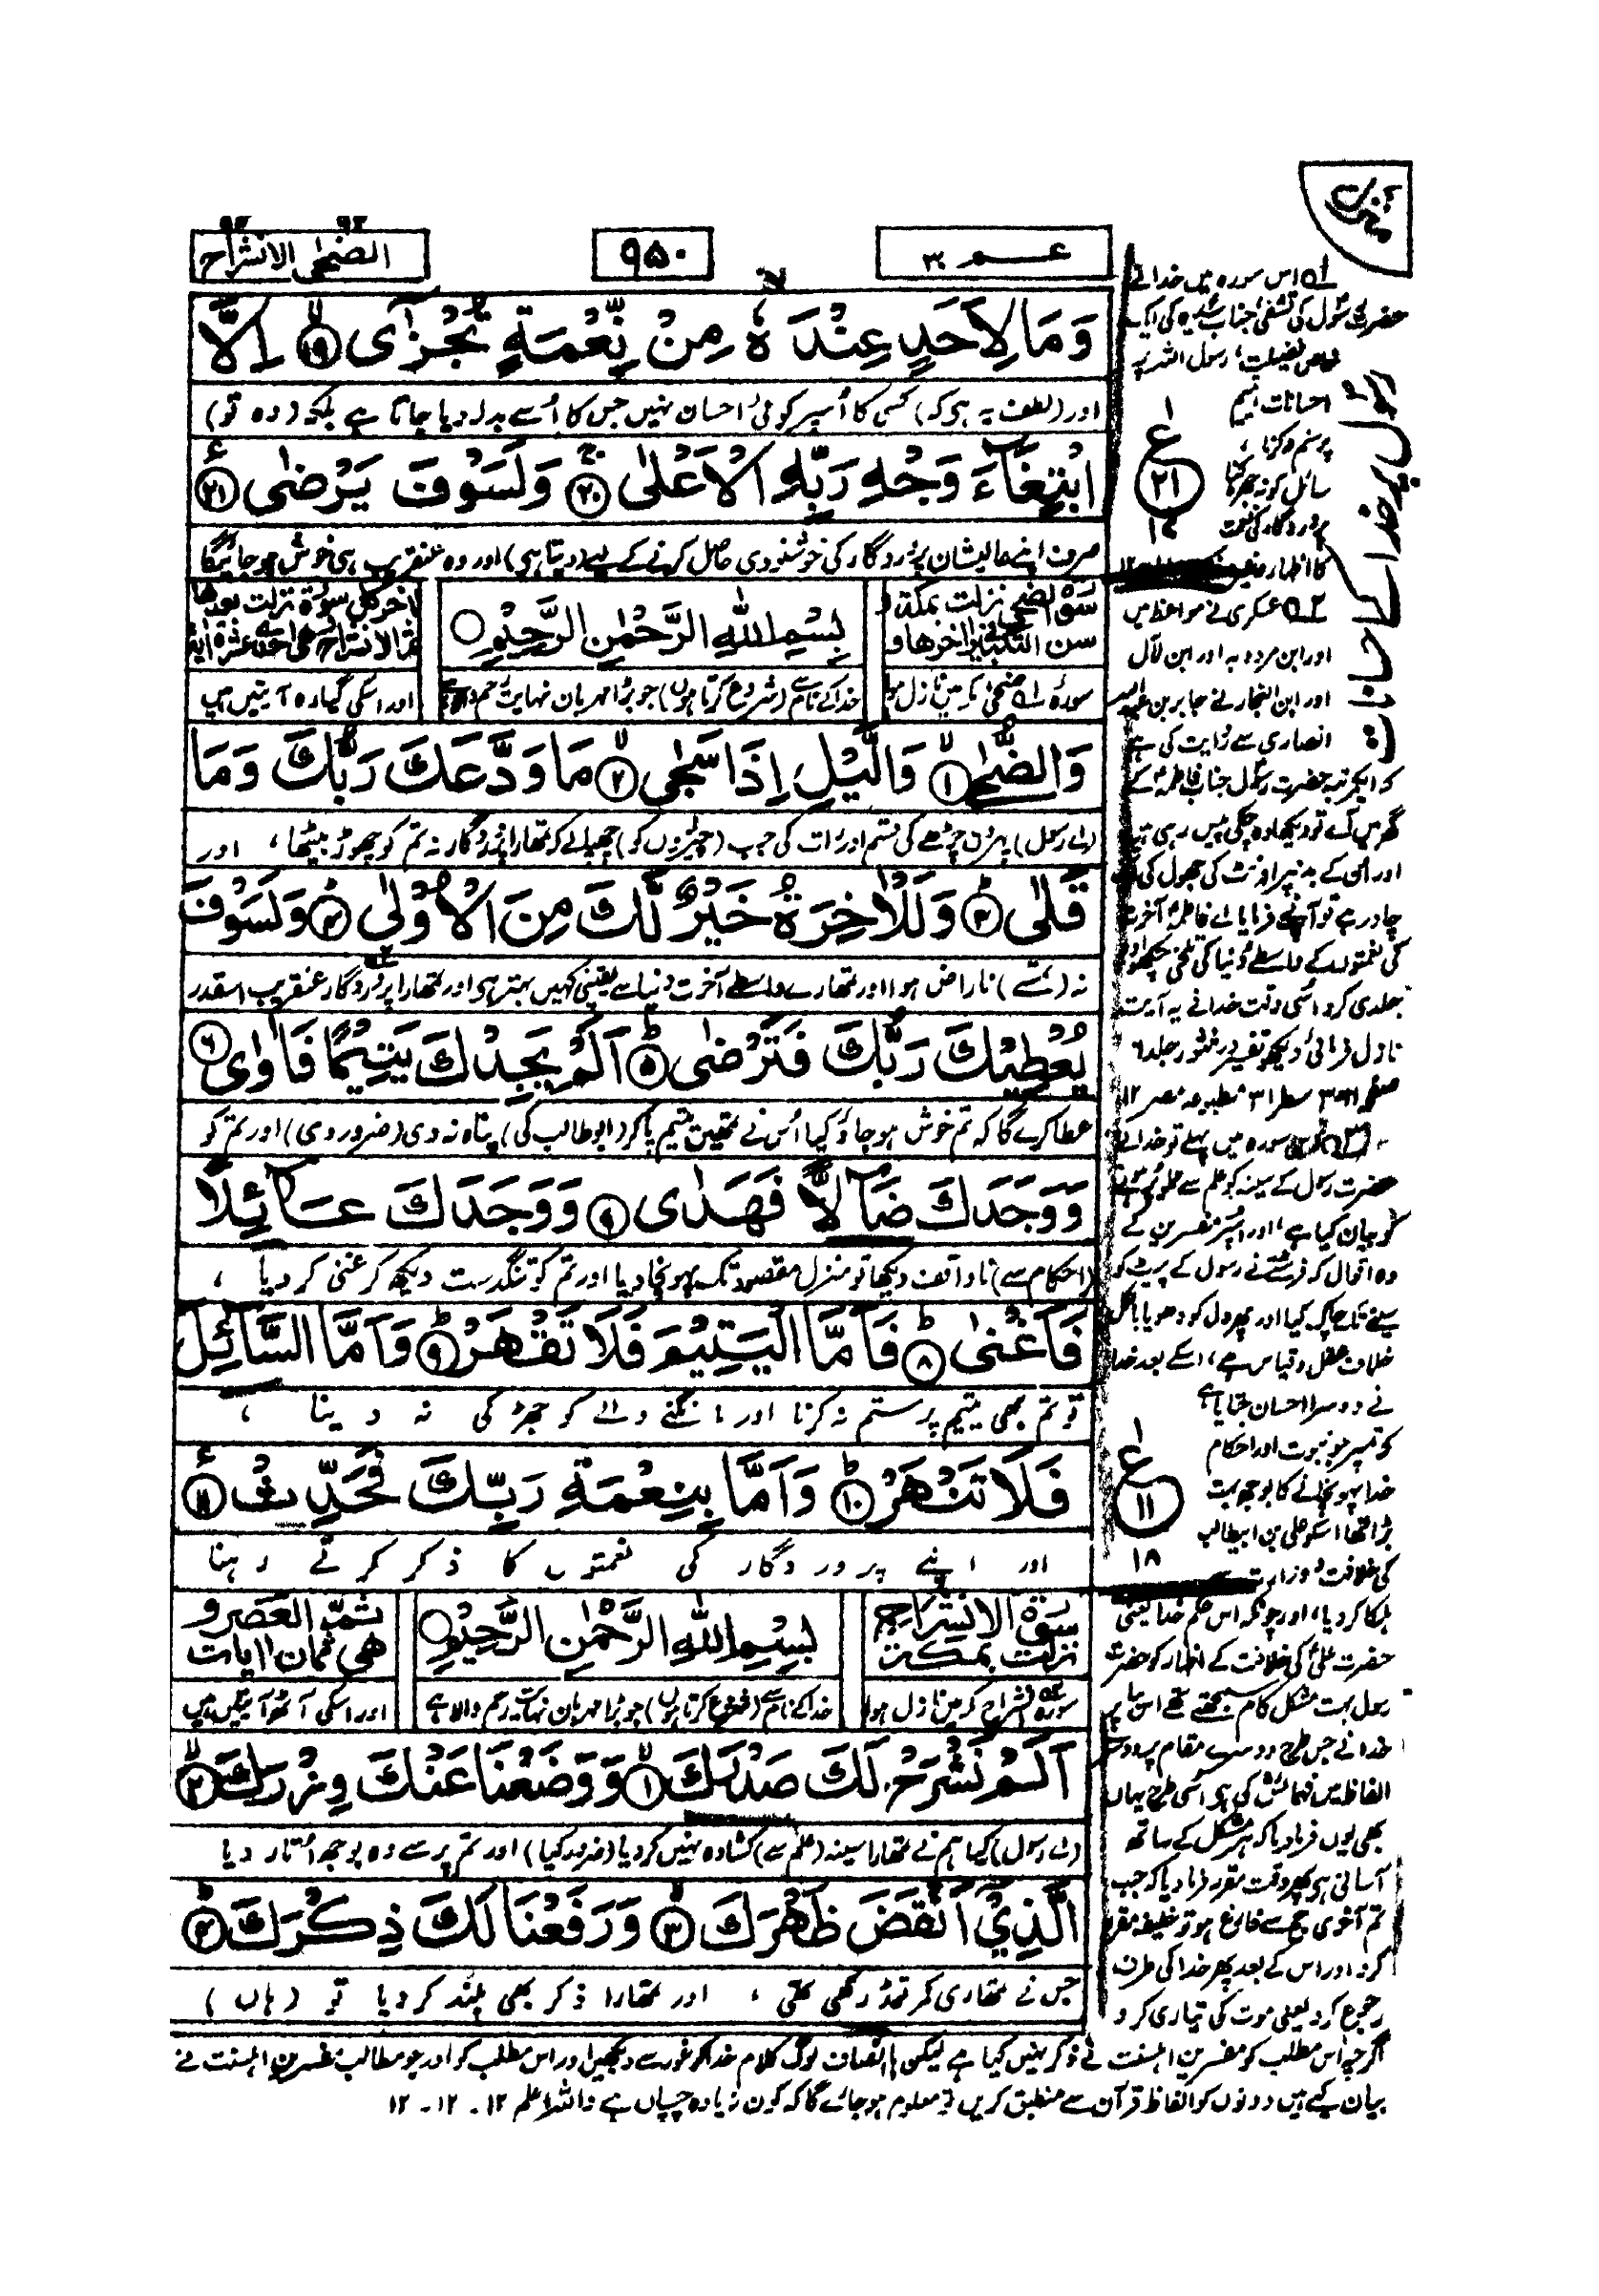 منزل
عم ۳۰
۹۵۰
۹۳ ۹۴
الضحیٰ الانشراح
وَمَا لِاَحَدٍ عِنْدَهٗ مِنْ نِّعْمَةٍ تُجْزٰۤى ۱۹ اِلَّا
اور (لطف یہ ہی کہ) کسی کا اُسپر کوئی احسان نہیں جس کا اُسے بدلہ دیا جاتا ہے بلکہ (وہ تو)
ابْتِغَآءَ وَجْهِ رَبِّهِ الْاَعْلٰى ۲۰ وَلَسَوْفَ يَرْضٰى ۲۱
صرف اپنے عالیشان پروردگار کی خوشنودی حاصل کرنے کے لیے (دیتا ہی) اور وہ عنقریب ہی خوش ہو جائیگا
سورة الضحى نزلت بمكة و
سن التكبير فی اخرها و
بِسْمِ اللهِ الرَّحْمٰنِ الرَّحِيْمِ
اخر كل سورة نزلت بعدها
سورۂ ضحیٰ مکہ میں نازل ہوا
خدا کے نام سے (شروع کرتا ہوں) جو بڑا مہربان نہایت رحم والا ہے
اور اسکی گیارہ آیتیں ہیں
وَالضُّحٰى ۱ وَالَّيْلِ اِذَا سَجٰى ۲ مَا وَدَّعَكَ رَبُّكَ وَمَا
(اے رسول) پہر دن چڑھے کی قسم اور رات کی جب (چیزوں کو) چھپا لے کہ تمھارا پروردگار نہ تم کو چھوڑ بیٹھا، اور
قَلٰى ۳ وَلَلْاٰخِرَةُ خَيْرٌ لَّكَ مِنَ الْاُوْلٰى ۴ وَلَسَوْفَ
نہ (تمسے) ناراض ہوا اور تمھارے واسطے آخرت دنیا سے یقینی کہیں بہتر ہی اور تمھارا پروردگار عنقریب اسقدر
يُعْطِيْكَ رَبُّكَ فَتَرْضٰى ۵ اَلَمْ يَجِدْكَ يَتِيْمًا فَاٰوٰى ۶
عطا کرے گا کہ تم خوش ہو جاؤ کیا اُس نے تمھیں یتیم پا کر (ابو طالب کی) پناہ نہ دی (ضرور دی) اور تم کو
وَوَجَدَكَ ضَآلًّا فَهَدٰى ۷ وَوَجَدَكَ عَآئِلًا
(احکام سے) ناواقف دیکھا تو منزل مقصود تک پہونچا دیا اور تم کو تنگدست دیکھ کر غنی کر دیا،
فَاَغْنٰى ۸ فَاَمَّا الْيَتِيْمَ فَلَا تَقْهَرْ ۹ وَاَمَّا السَّآئِلَ
تو تم بھی یتیم پر ستم نہ کرنا اور مانگنے والے کو جھڑکی نہ دینا،
فَلَا تَنْهَرْ ۱۰ وَاَمَّا بِنِعْمَةِ رَبِّكَ فَحَدِّثْ ۱۱
اور اپنے پروردگار کی نعمتوں کا ذکر کرتے رہنا
سورة الانشراح
نزلت بمكة
بِسْمِ اللهِ الرَّحْمٰنِ الرَّحِيْمِ
العصر و
هي ثمان ايات
سورۂ انشراح مکہ میں نازل ہوا
خدا کے نام سے (شروع کرتا ہوں) جو بڑا مہربان نہایت رحم والا ہے
اور اسکی آٹھ آیتیں ہیں
اَلَمْ نَشْرَحْ لَكَ صَدْرَكَ ۱ وَوَضَعْنَا عَنْكَ وِزْرَكَ ۲
(اے رسول) کیا ہم نے تمھارا سینہ (علم سے) کشادہ نہیں کر دیا (ضرور کیا) اور تم پر سے وہ بوجھ اُتار دیا
الَّذِيْۤ اَنْقَضَ ظَهْرَكَ ۳ وَرَفَعْنَا لَكَ ذِكْرَكَ ۴
جس نے تمھاری کمر توڑ رکھی تھی، اور تمھارا ذکر بھی بلند کر دیا تو (ہاں)
۱ اس سورہ میں خدا نے
حضرت رسول کی تشفی جناب سیدہ کی ایک
خاص فضیلت، رسول اللہ پر
احسانات یتیم
پر ستم نہ کرنا،
سائل کو نہ جھڑکنا
پروردگار کی نعمت
کا اظہار
ع ۲۱ ۱۷
۲ عسکری نے مواعظ میں
اور ابن مردویہ اور ابن لآل
اور ابن النجار نے جابر بن عبداللہ
انصاری سے روایت کی ہے
کہ ایک مرتبہ حضرت رسول جناب فاطمہ کے
گھر میں آئے تو دیکھا وہ چکی پیس رہی ہیں
اور اُن کے بدن پر اونٹ کی جھول کی
چادر ہے تو آپ نے فرمایا اے فاطمہ آخرت
کی نعمتوں کے واسطے دنیا کی تلخی چکھو اور
جلدی کرو اُسی وقت خدا نے یہ آیت
نازل فرمائی دیکھو تفسیر در منثور جلد ۶
صفحہ ۳۶۱ سطر ۳۱ مطبوعہ مصر ۱۲
۳ اس سورہ میں پہلے تو خدا نے
حضرت رسول کے سینہ کو علم سے مملو
کو بیان کیا ہے، اور اسپر مفسرین کے
وہ اقوال کہ فرشتے نے رسول کے پیٹ کو
سینے تک چاک کیا اور پھر دل کو دھویا بالکل
خلاف عقل و قیاس ہے، اسکے بعد خدا
نے دوسرا احسان جتایا ہے
کہ تمپر جو نبوت اور احکام
خدا پہونچانے کا بوجھ بہت
بڑا تھا اسکو علی بن ابیطالب
کی خلافت و وزارت سے
ع ۱۱ ۱۸
ہلکا کر دیا، اور چونکہ اس حکم خدا یعنی
حضرت علی کی خلافت کے اظہار کو حضرت
رسول بہت مشکل کام سمجھتے تھے اس بنا پر
خدا نے جس طرح دوسرے مقام پر دوسرے
الفاظ میں فہمائش کی ہی اُسی طرح یہاں
بھی یوں فرما دیا کہ ہر مشکل کے ساتھ
آسانی ہی پھر وقت مقرر فرما دیا کہ جب
تم آخری حج سے فارغ ہو تو خلیفہ مقرر
کرو اور اس کے بعد پھر خدا کی طرف
رجوع کرو یعنی موت کی تیاری کرو
اگرچہ اس مطلب کو مفسرین اہلسنت نے ذکر نہیں کیا ہے لیکن با انصاف لوگ کلام خدا کو غور سے دیکھیں اور اس مطلب کو اور جو مطالب مفسرین اہلسنت نے
بیان کیے ہیں دونوں کو الفاظ قرآن سے منطبق کریں تو معلوم ہو جائے گا کہ کون زیادہ چسپاں ہے واللہ اعلم ۱۲ - ۱۲ - ۱۲